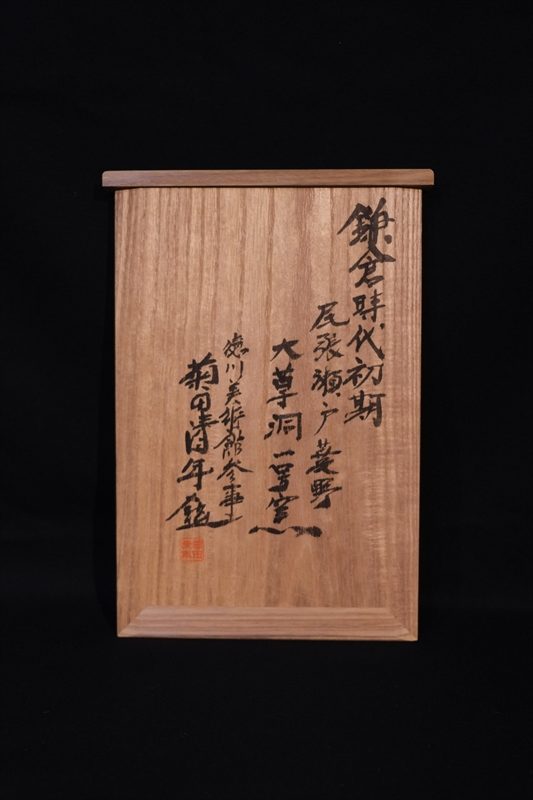 鎌倉時代初期
尾張瀬戸菱野
大草洞一号窯
徳川美術館参事
菊田清年鑑